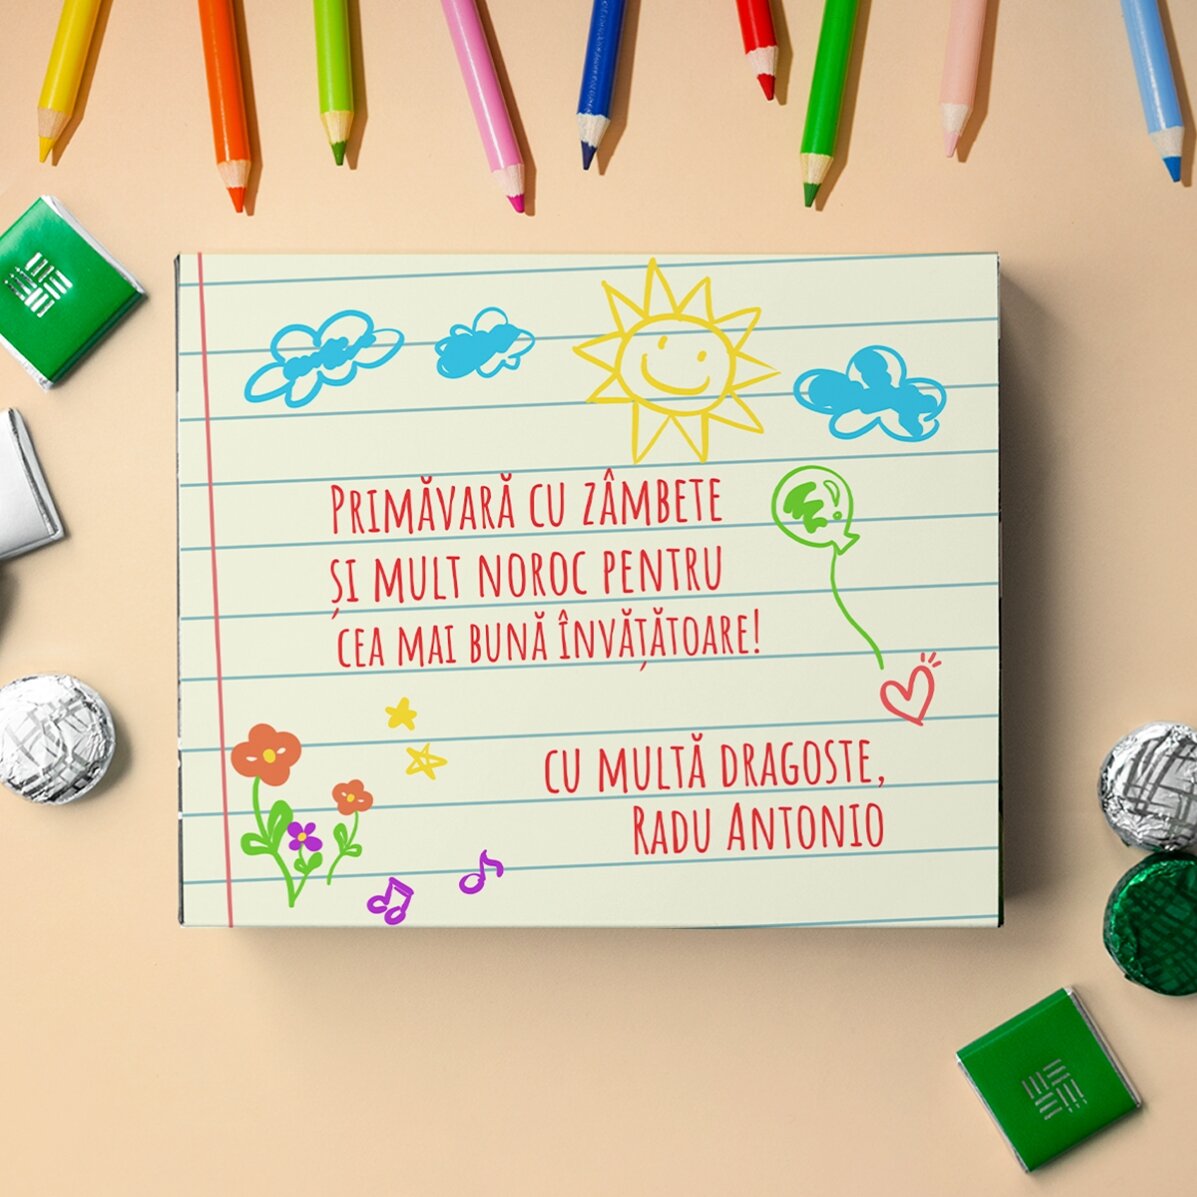 Primăvară cu zâmbete
și mult noroc pentru
cea mai bună învățătoare!
cu multă dragoste,
Radu Antonio